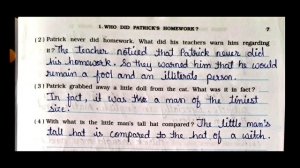 1. WHO DID PATRICK'S HOMEWORK? 7
(2) Patrick never did homework. What did his teachers warn him regarding
it? The teacher noticed that Patrick never did
his homework. So they warned him that he would
remain a fool and an illiterate person.
(3) Patrick grabbed away a little doll from the cat. What was it in fact?
In fact, it was the a man of the tiniest
size.
(4) With what is the little man's tall hat compared? The little man's
tall hat is compared to the hat of a witch.